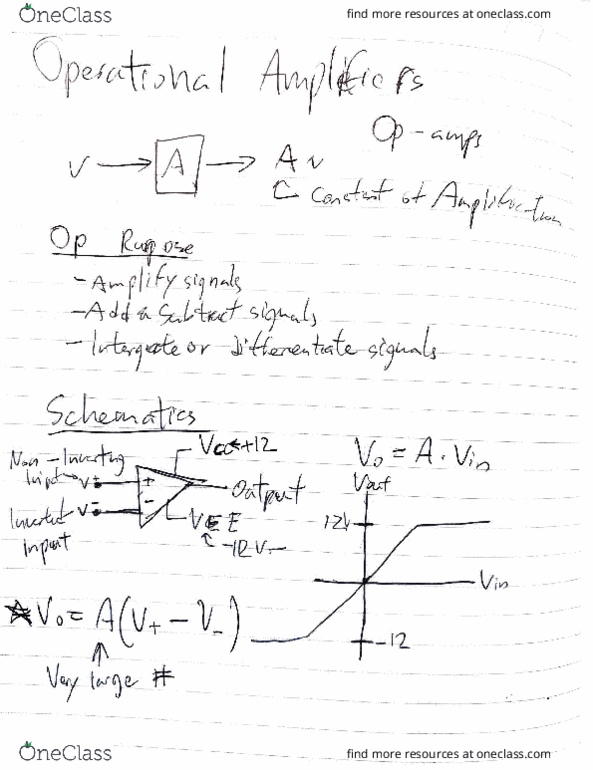 OneClass
find more resources at oneclass.com
Operational Amplifiers
Op-amps
v → A → Av
Constant of Amplification
Op Rupose
- Amplify signals
- Add & Subtract signals
- Intergate or Differentiate signals
Schematics
Non-Inverting
Input → V+
+
Vcc ← +12
Output
Inverted
Input
V-
-
VEE
-12V
Vo = A · Vin
Vout
12V
Vin
-12
☆ Vo = A(V+ - V-)
Very large #
OneClass
find more resources at oneclass.com